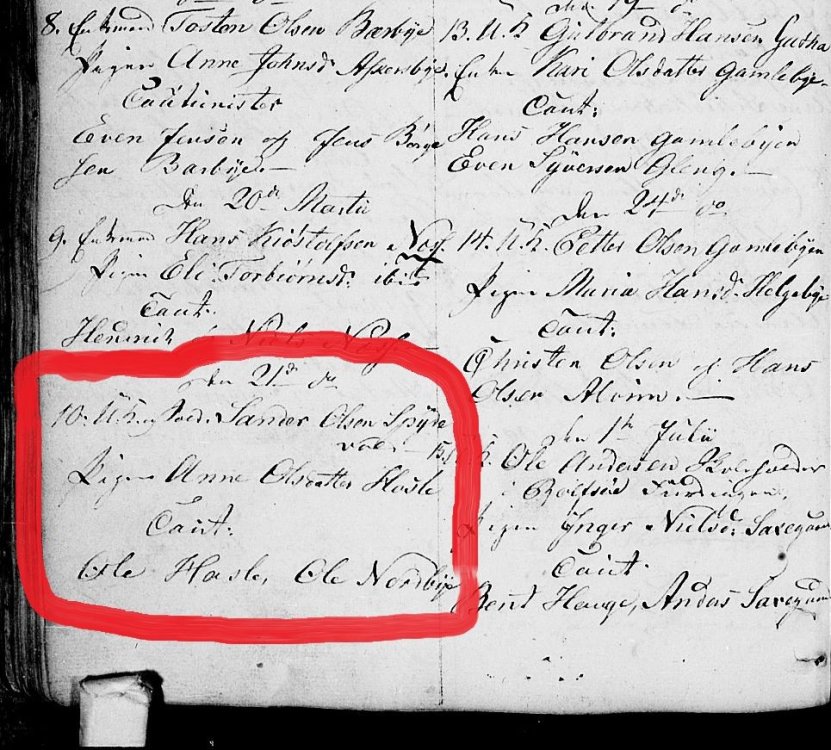 8. Enkemand Tosten Olsen Bærbye
Pigen Anne Johnsd: Askersbye.
Cautionister
Even Jensen og Jens Børge
sen Barbye.—
Den 20de Martii
9. Enkemand Hans Kiöstelssen Næss.
Pigen Eli Torbiörnsd: ibid
Caut:
Hendrich Niels Næss
Den 21de do
10. U.K. og Sold. Sander Olsen Spyde
vold —
Pigen Anne Olsdatter Hasle
Caut:
Ole Hasle, Ole Nordbye
13. U.K. Gulbrand Hansen
Enken Kari Olsdatter Gamlebye
Caut:
Hans Hansen Gamlebyen
Even Syversen Gleng.—
Den 24de do
14. U.K. Petter Olsen Gamlebyen
Pigen Maria Hansd: Helgebye
Caut:
Christen Olsen og Hans
Olsen Alvim.—
den 1ste Julii
15. U.K. Ole Andersen
i Rolfsöe
Pigen Ynger Nielsd:
Caut.
Bent Hauge, Anders